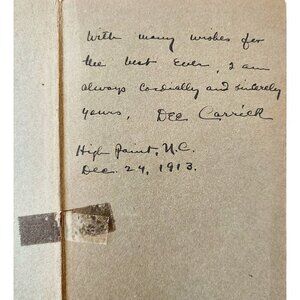 With many wishes for
the best ever, I am
always cordially and sincerely
yours, Dee Carrick
High Point, N.C.
Dec. 24, 1913.